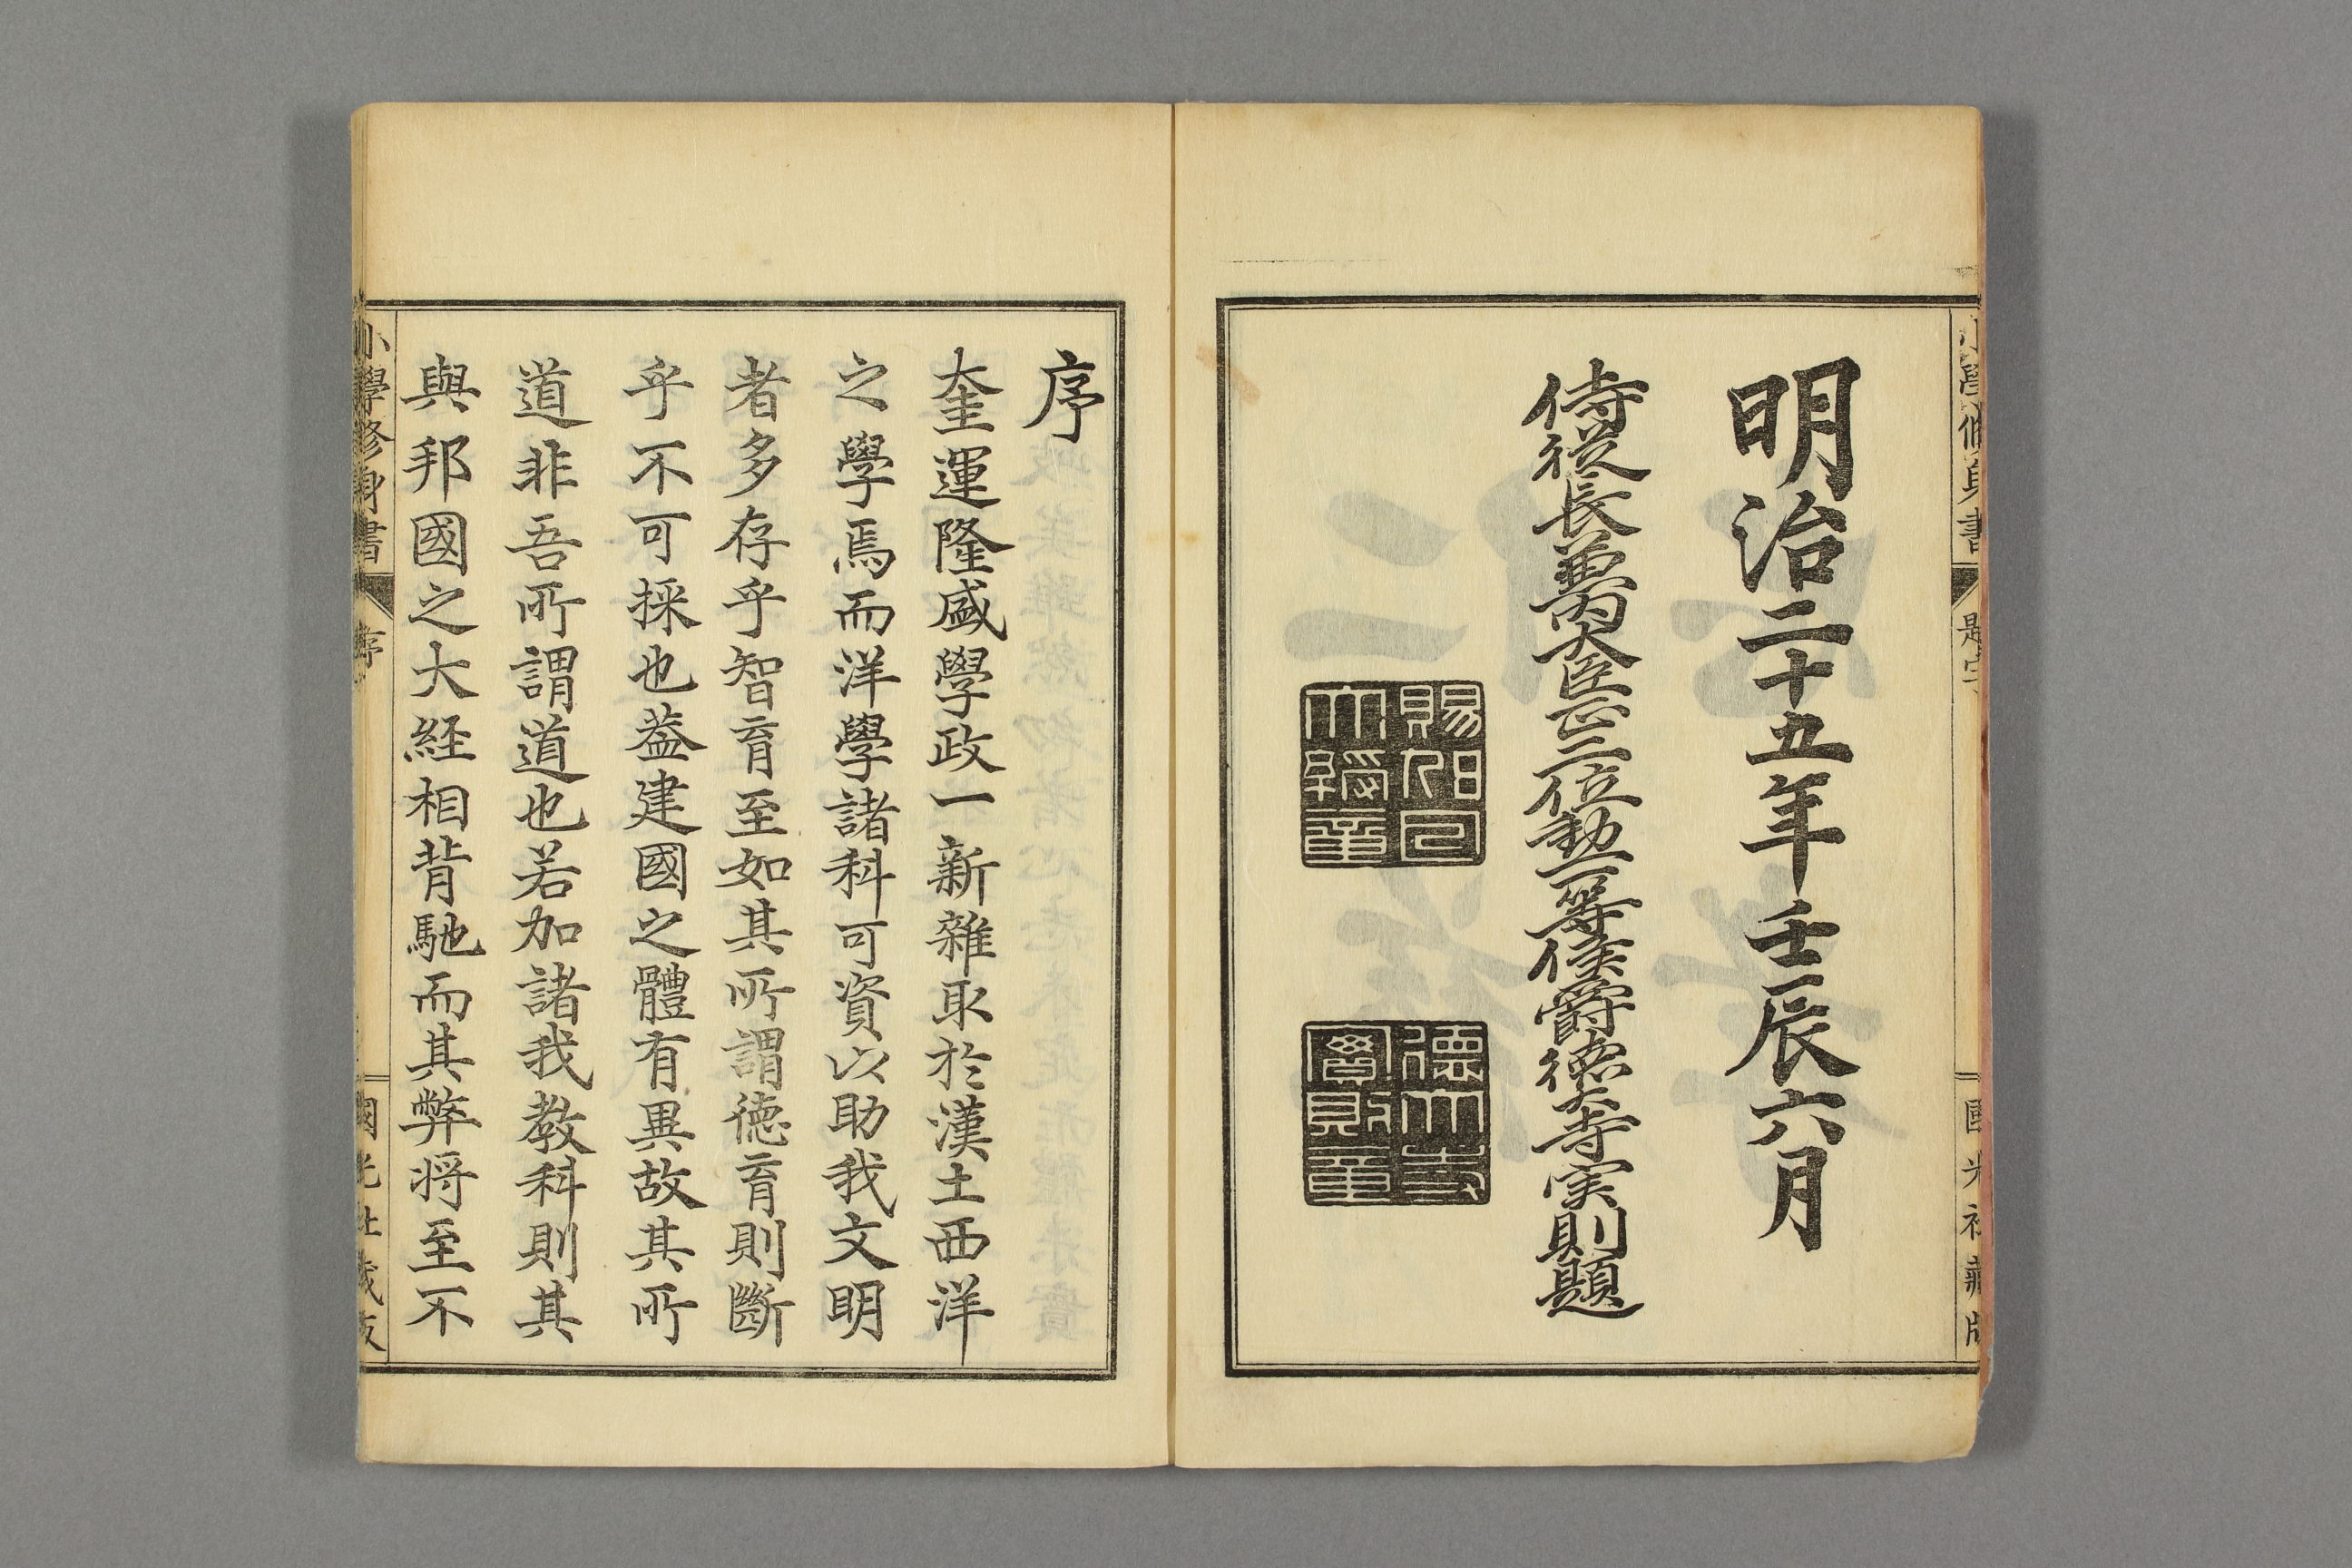 明治二十五年壬辰六月
侍従長兼内大臣正二位勲一等侯爵徳大寺実則題
德大寺
實則章
小學修身書
題字
國光社藏版
序
奎運隆盛學政一新雜取於漢土西洋
之學焉而洋學諸科可資以助我文明
者多存乎智育至如其所謂徳育則斷
乎不可採也蓋建國之體有異故其所
道非吾所謂道也若加諸我教科則其
與邦國之大経相背馳而其弊将至不
小學修身書
序
國光社藏版